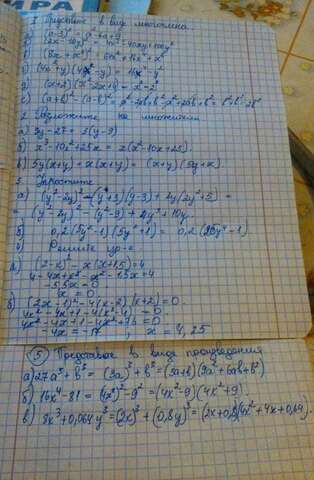 1. Представте в виде многочлена.
а) (a-3)² = a²-6a+9
б) (2x-10y)² = 4x²-40xy+100y²
в) (8x+x²)² = 64x²+16x³+x⁴
г) (4x²+y)(4x²-y) = 16x⁴-y²
д) (x+2)(x²-2x+4) = x³-2³
е) (a+b)²-(a-b)²=
2. Разложите на множители
а) 3y-27 = 3(y-9)
б) x³-10x²+25x = x(x²-10x+25).
в) 5y(x+y)+x(x+y) = (x+y)(5y+x).
3. Упростите
а) (y²-2y)²-(y+3)(y-3)+2y(2y²+5) =
= (y²-2y)²-(y²-9)+4y³+10y.
б) 0,2(5y²-1)(5y²+1) = 0,2(25y⁴-1)
4 Решите ур-е
а) (2-x)²-x(x+1,5)=4
4-4x+x²-x²-1,5x=4
-5,5x=0
x=0
б) (2x-1)²-4(x-2)(x+2)=0.
4x²-4x+1-4(x²-4)=0
4x²-4x+1-4x²+16=0
-4x=-17, x=4,25
5 Представте в виде произведения
а) 27a³+b³=(3a)³+b³=(3a+b)(9a²+6ab+b²)
б) 16x⁴-81=(4x²)²-9²=(4x²-9)(4x²+9)
в) 8x³+0,064y³=(2x)³+(0,8y)³=(2x+0,8)(4x²+4x+0,64).